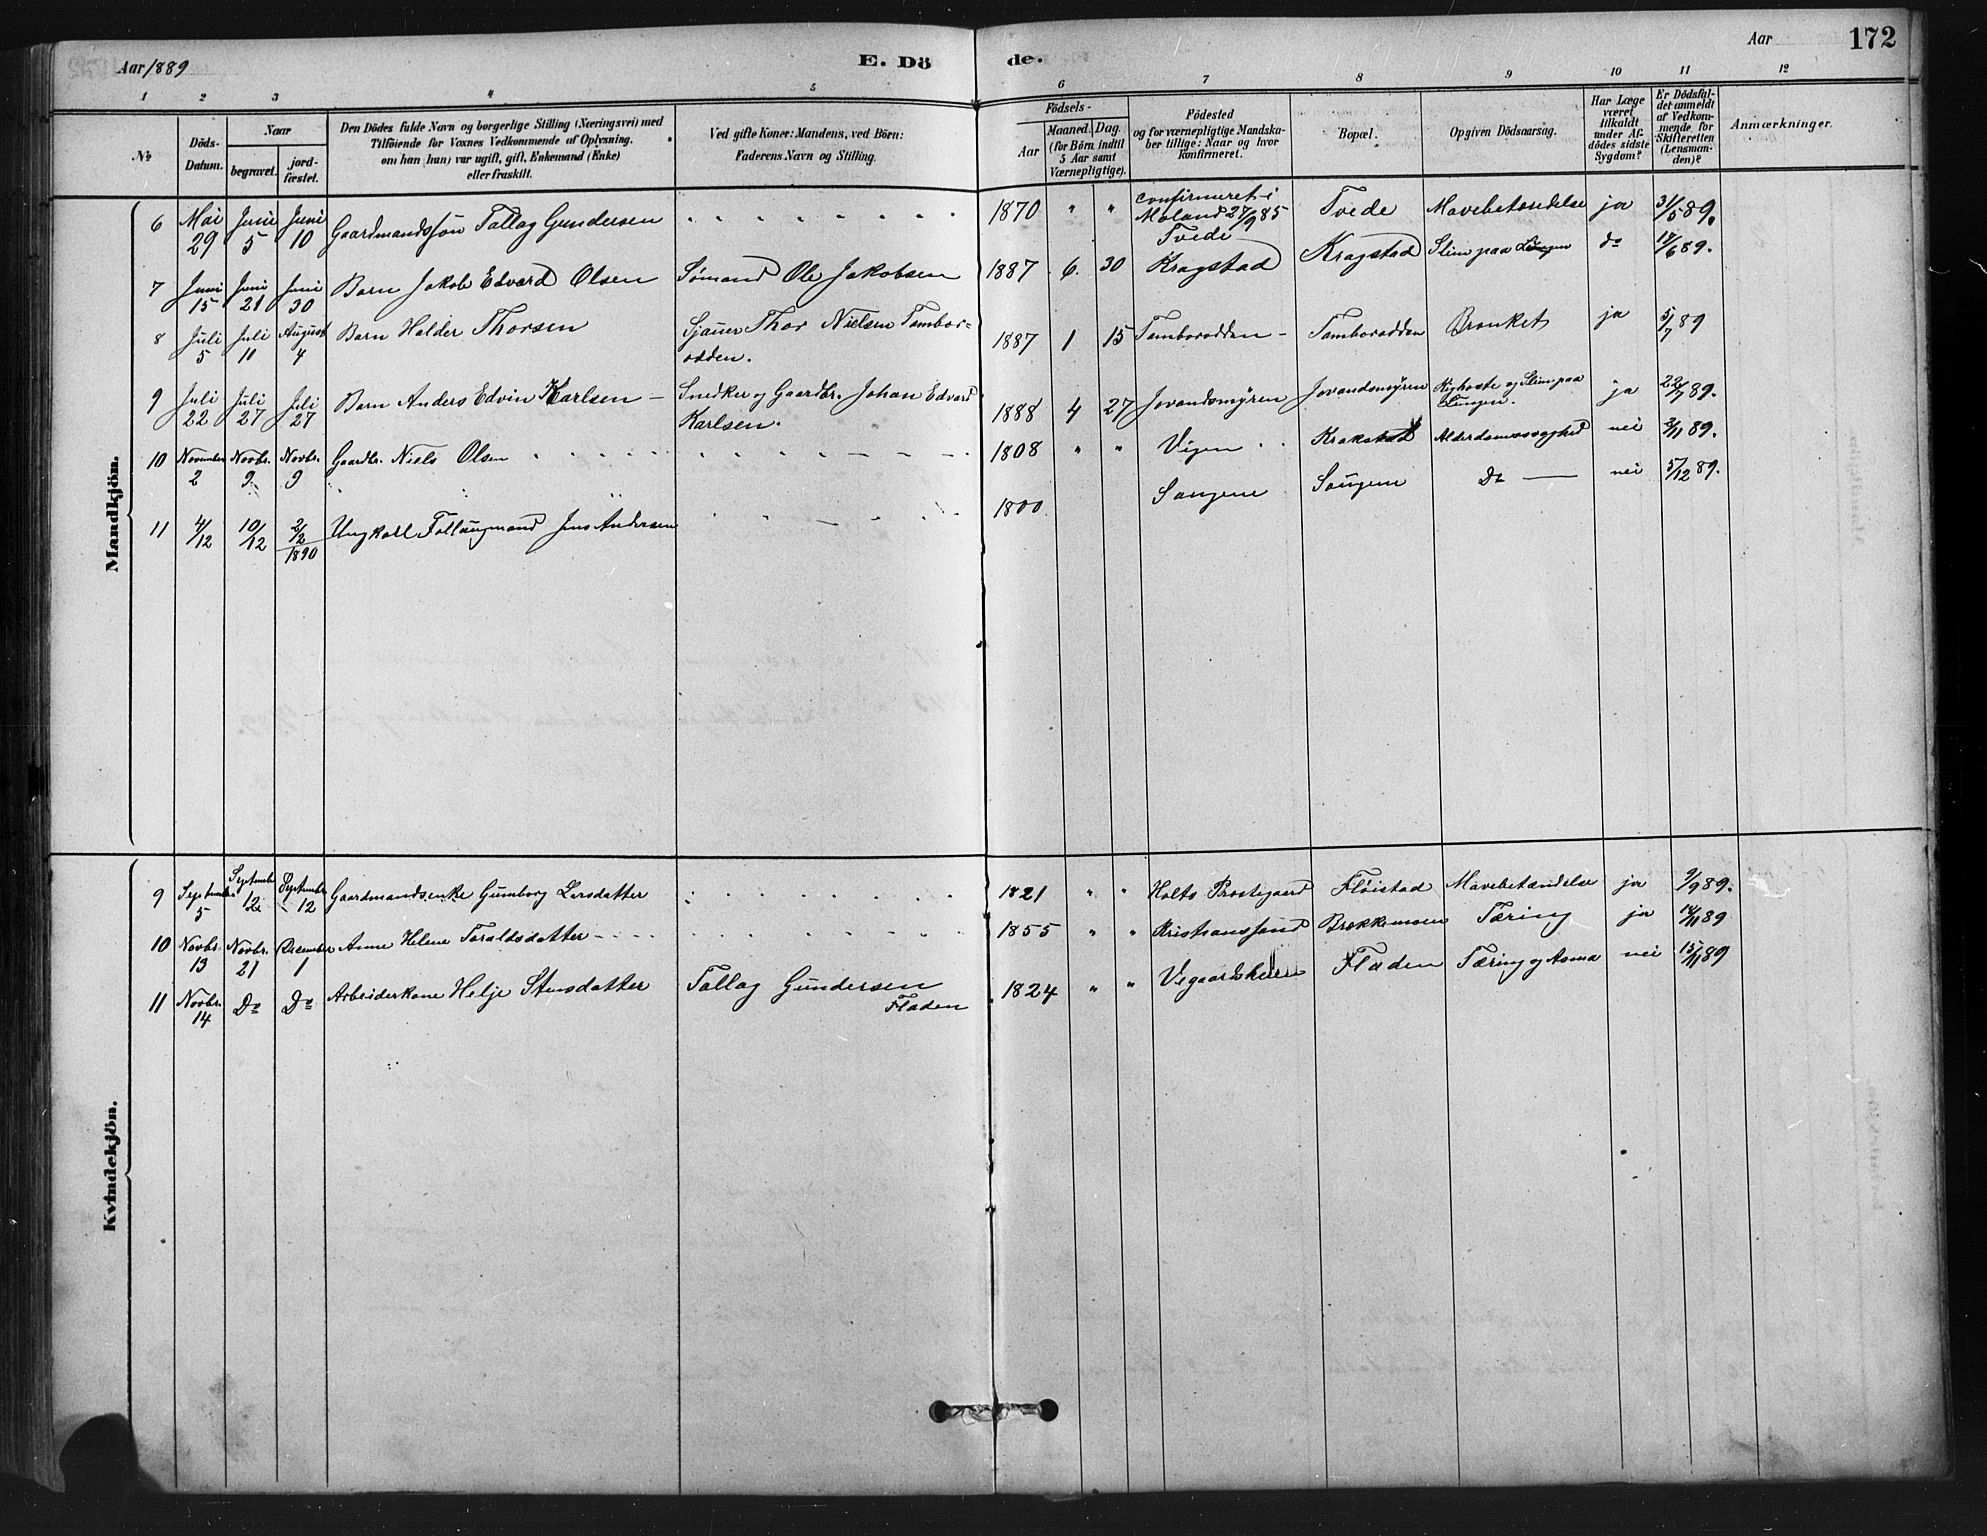 Aar 1889
E. Dö
de.
Aar
172
1 2 3 4 5 6 7 8 9 10 11 12
№
Döds-
Datum.
Naar
begravet.
jord-
fæstet.
Den Dödes fulde Navn og borgerlige Stilling (Næringsvei) med
Tilföiende for Voxnes Vedkommende af Oplysning,
om han (hun) var ugift, gift, Enkemand (Enke)
eller fraskilt.
Ved gifte Koner: Mandens, ved Börn:
Faderens Navn og Stilling.
Födsels-
Aar
Maaned. Dag.
(for Börn indtil
5 Aar samt
Værnepligtige).
Födested
og for værnepligtige Mandska-
ber tillige: Naar og hvor
konfirmeret.
Bopæl.
Opgiven Dödsaarsag.
Har Læge
været
tilkaldt
under Af-
dödes sidste
Sygdom?
Er Dödsfal-
det anmeldt
af Vedkom-
mende for
Skifteretten
(Lensman-
den)?
Anmærkninger.
Mandkjön.
6 Mai 29 Juni 5 Juni 10 Gaardmandssön Tallag Gundersen " 1870 " " confirmeret i Moland 27/9 85 Tvede Tvede Mavebetændelse ja 31/5 89.
7 Juni 15 Juni 21 Juni 30 Barn Jakob Edvard Olsen Sømand Ole Jakobsen 1887 6. 30 Kragstad Kragstad Slim paa Lungen do 17/6 89.
8 Juli 5 Juli 10 August 4 Barn Halder Thorsen Sjauer Thor Nielsen Tambor=
odden. 1887 1 15 Tamborodden - Tamborodden Bronket ja 5/7 89
9 Juli 22 Juli 27 Juli 27 Barn Anders Edvin Karlsen — Snedker og Gaardbr. Johan Edvard
Karlsen. 1888 4 27 Jovandsmyren Jovandsmyren Kighoste og Slim paa Lungen. ja 22/7 89.
10 November 2 Novbr. 9 Novbr. 9 Gaardbr. Niels Olsen 1808 " " Vigen Krakstad Alderdomssvaghed nei 2/11 89.
11 4/12 10/12 2/2 1890 Ungkarl Fattigmand Jens Andersen 1800 Songene Songene Do — nei 5/12 89.
Kvindekjön.
9 September 5 September 12 September 12 Gaardmandsenke Gumborg Larsdatter 1821 " " Holts Prestegaard Flöistad Mavebetændelse ja 9/9 89.
10 Novbr. 13 Novbr. 21 December 1 Anne Helene Taraldsdatter 1855 " " Kristianssand Brekkemoen Tæring ja 14/11 89
11 Novbr. 14 Do Do Arbeiderkone Helje Stensdatter Tallag Gundersen
Fladen 1824 " " Vegaardsheien Fladen Tæring og Asma nei 15/11 89